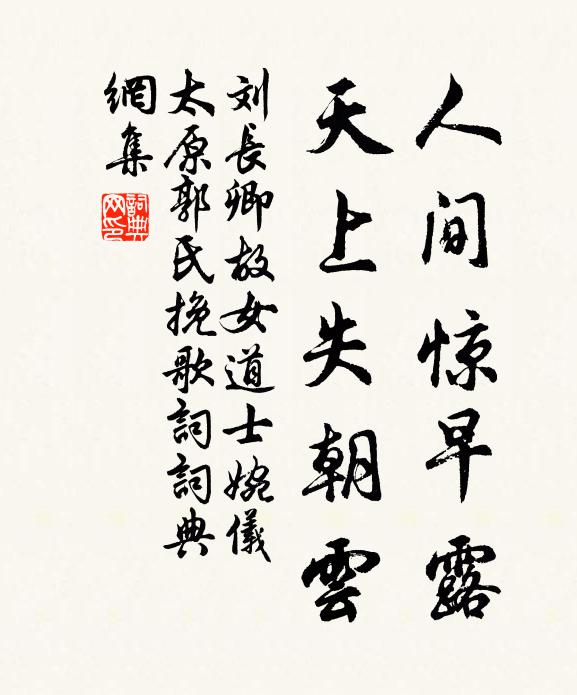 人间惊早露
天上失朝雲
刘長卿故女道士婉儀
太原郭氏挽歌詞詞典
網集
詞典
网印